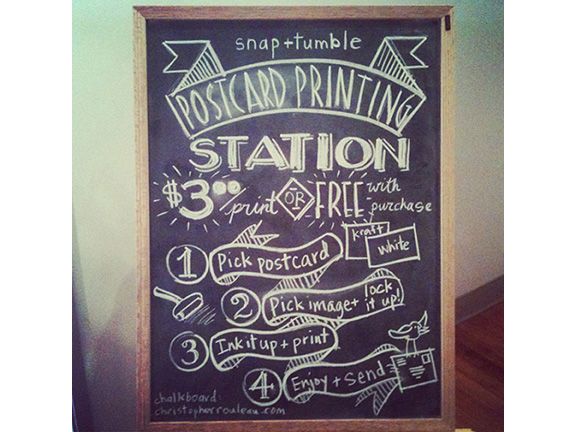 snap+tumble
POSTCARD PRINTING
STATION
$3.00 print OR FREE with purchase
kraft
white
1 Pick postcard
2 Pick image + lock it up!
3 Ink it up + print
4 Enjoy + Send
chalkboard:
christopherrouleau.com